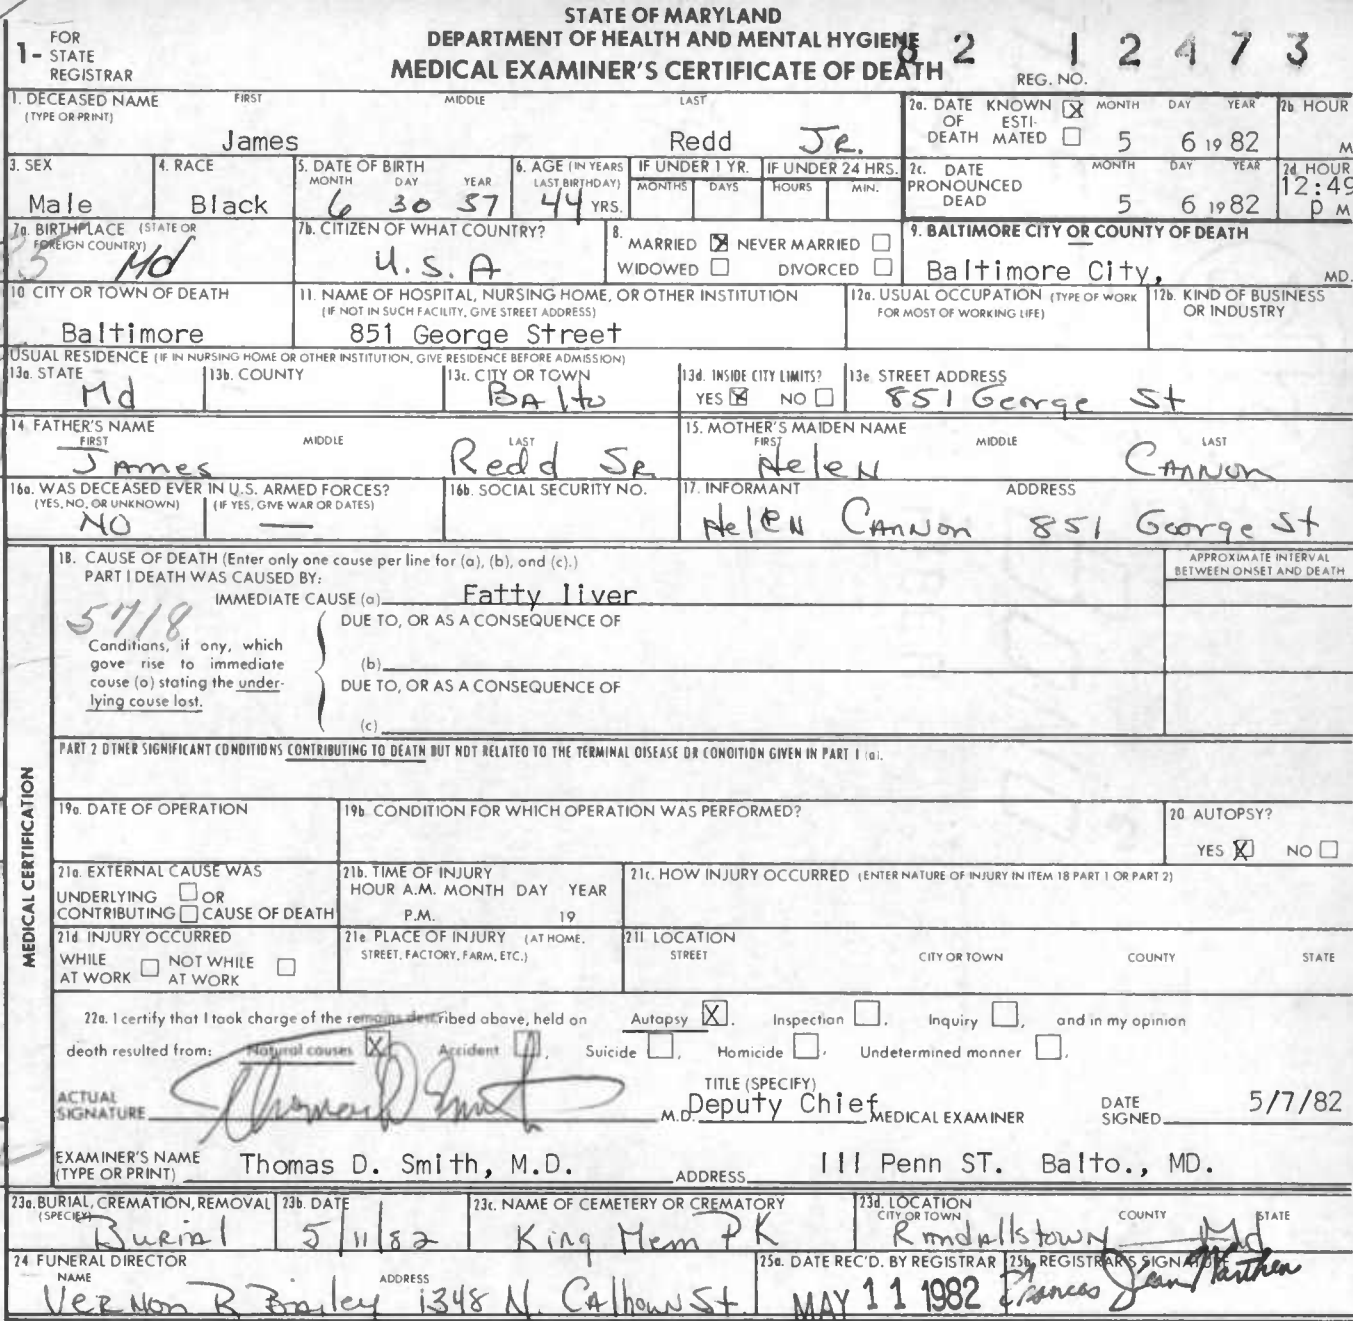 STATE OF MARYLAND
DEPARTMENT OF HEALTH AND MENTAL HYGIENE
MEDICAL EXAMINER'S CERTIFICATE OF DEATH
1- FOR STATE REGISTRAR
82 12473
REG. NO.
1. DECEASED NAME (TYPE OR PRINT) FIRST MIDDLE LAST
James Redd JR.
2a. DATE OF DEATH KNOWN [X] ESTIMATED [ ] MONTH DAY YEAR
5 6 1982
2b HOUR M
3. SEX
Male
4. RACE
Black
5. DATE OF BIRTH MONTH DAY YEAR
6 30 37
6. AGE (IN YEARS LAST BIRTHDAY)
44 YRS.
IF UNDER 1 YR. MONTHS DAYS
IF UNDER 24 HRS. HOURS MIN.
2c. DATE PRONOUNCED DEAD MONTH DAY YEAR
5 6 1982
2d HOUR
12:49 P M
7a. BIRTHPLACE (STATE OR FOREIGN COUNTRY)
Md
7b. CITIZEN OF WHAT COUNTRY?
U.S.A
8. MARRIED [X] NEVER MARRIED [ ]
WIDOWED [ ] DIVORCED [ ]
9. BALTIMORE CITY OR COUNTY OF DEATH
Baltimore City, MD.
10 CITY OR TOWN OF DEATH
Baltimore
11. NAME OF HOSPITAL, NURSING HOME, OR OTHER INSTITUTION
(IF NOT IN SUCH FACILITY, GIVE STREET ADDRESS)
851 George Street
12a. USUAL OCCUPATION (TYPE OF WORK FOR MOST OF WORKING LIFE)
12b. KIND OF BUSINESS OR INDUSTRY
USUAL RESIDENCE (IF IN NURSING HOME OR OTHER INSTITUTION, GIVE RESIDENCE BEFORE ADMISSION)
13a. STATE
Md
13b. COUNTY
13c. CITY OR TOWN
BAlto
13d. INSIDE CITY LIMITS?
YES [X] NO [ ]
13e STREET ADDRESS
851 George St
14. FATHER'S NAME FIRST MIDDLE LAST
JAmes Redd SR
15. MOTHER'S MAIDEN NAME FIRST MIDDLE LAST
HeleN CANNON
16a. WAS DECEASED EVER IN U.S. ARMED FORCES?
(YES, NO, OR UNKNOWN) (IF YES, GIVE WAR OR DATES)
NO —
16b. SOCIAL SECURITY NO.
17. INFORMANT ADDRESS
HeleN CANNON 851 George St
MEDICAL CERTIFICATION
18. CAUSE OF DEATH (Enter only one cause per line for (a), (b), and (c).)
PART I DEATH WAS CAUSED BY:
IMMEDIATE CAUSE (a) Fatty liver
APPROXIMATE INTERVAL BETWEEN ONSET AND DEATH
5718
DUE TO, OR AS A CONSEQUENCE OF
Conditions, if any, which gave rise to immediate cause (a) stating the underlying cause last.
(b)
DUE TO, OR AS A CONSEQUENCE OF
(c)
PART 2 OTHER SIGNIFICANT CONDITIONS CONTRIBUTING TO DEATH BUT NOT RELATED TO THE TERMINAL DISEASE OR CONDITION GIVEN IN PART 1 (a).
19a. DATE OF OPERATION
19b CONDITION FOR WHICH OPERATION WAS PERFORMED?
20 AUTOPSY?
YES [X] NO [ ]
21a. EXTERNAL CAUSE WAS
UNDERLYING [ ] OR
CONTRIBUTING [ ] CAUSE OF DEATH
21b. TIME OF INJURY
HOUR A.M. MONTH DAY YEAR
P.M. 19
21c. HOW INJURY OCCURRED (ENTER NATURE OF INJURY IN ITEM 18 PART 1 OR PART 2)
21d INJURY OCCURRED
WHILE AT WORK [ ] NOT WHILE AT WORK [ ]
21e PLACE OF INJURY (AT HOME, STREET, FACTORY, FARM, ETC.)
21f LOCATION
STREET CITY OR TOWN COUNTY STATE
22a. I certify that I took charge of the remains described above, held on Autopsy [X], Inspection [ ], Inquiry [ ], and in my opinion
death resulted from: Natural causes [X] Accident [ ], Suicide [ ], Homicide [ ], Undetermined manner [ ].
ACTUAL SIGNATURE Thomas D Smith M.D.
TITLE (SPECIFY)
Deputy Chief MEDICAL EXAMINER
DATE SIGNED 5/7/82
EXAMINER'S NAME (TYPE OR PRINT) Thomas D. Smith, M.D.
ADDRESS 111 Penn ST. Balto., MD.
23a. BURIAL, CREMATION, REMOVAL (SPECIFY)
BURIAl
23b. DATE
5/11/82
23c. NAME OF CEMETERY OR CREMATORY
King Mem PK
23d. LOCATION CITY OR TOWN COUNTY STATE
RandAllstown Md
24 FUNERAL DIRECTOR
NAME ADDRESS
VERNON R Bailey 1348 N. CAlhoun St.
25a. DATE REC'D. BY REGISTRAR
MAY 11 1982
25b. REGISTRAR'S SIGNATURE
Frances Jean Narthen